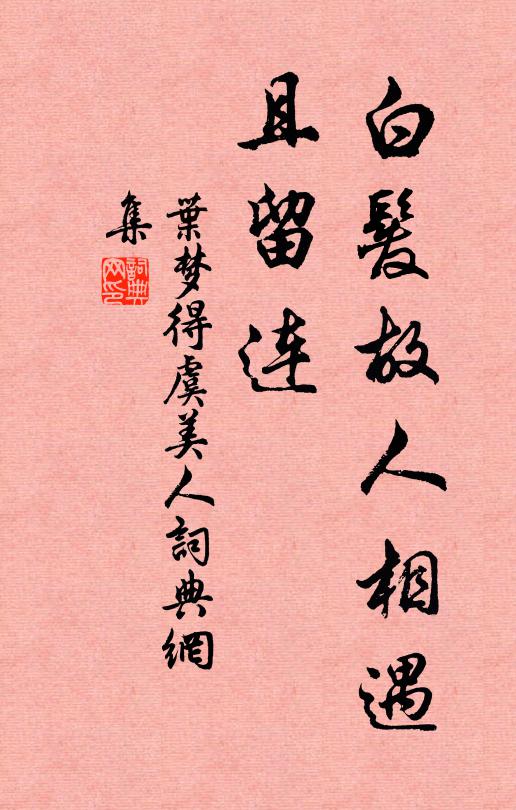 白髮故人相遇
且留连
葉梦得虞美人詞典網
集
詞典
网印